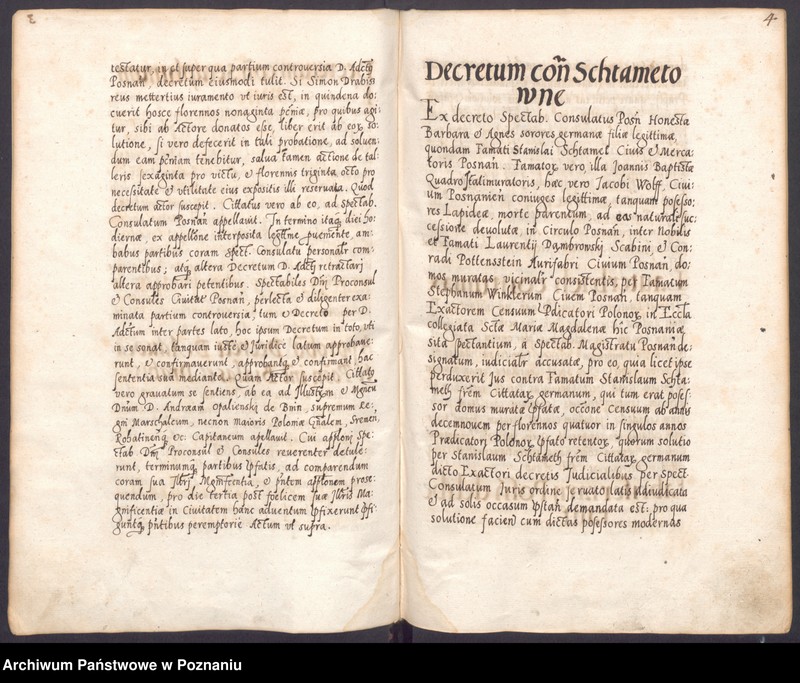 3
testatur, in et super qua partium controversia D. Adctꝯ
Posnań, decretum eiusmodi tulit. Si Simon Drabiss
reus mettertius iuramento vt iuris est, in quindena do:
cuerit hosce florennos nonaginta pcniæ, pro quibus agi:
tur, sibi ab Actore donatos esse, liber erit ab eor so:
lutione, si vero defecerit in tuli probatione, ad soluen:
dum eam pcniam tenebitur, salua tamen actione de tal:
leris sexaginta pro victu, et florennis triginta octo pro
necessitate et vtilitate eius expositis illi reseruata. Quod
decretum actor suscepit. Cittatus vero ab eo, ad Spectab.
Consulatum Posnań appellauit. In termino itaqꝫ diei ho:
diernæ, ex appellone interposita legttime, am:
babus partibus coram Spect. Consulatu personalr com:
parentibus; atqꝫ altera Decretum D. Adctꝯ retractarj
altera approbari petentibus. Spectabiles Dnj Proconsul
et Consules Ciuitat Posnań, perlecta et diligenter exa:
minata partium controuersia, tum et Decreto per D.
Adctum inter partes lato, hoc ipsum Decretum in toto, vti
in se sonat, tanquam iuste et Juridice latum approbaue:
runt, et confirmauerunt, approbantqꝫ et confirmant, hac
sententia sua mediante. Quam Actor suscepit. Cittatꝯ
vero grauatum se sentiens, ab ea ad Illustrem et Mgncum
Dnum D. Andream Opalienskj de Bnin, supremum Re:
gni Marschalcum, necnon maioris Poloniæ Gnalem, Sremen,
Rohatinenqꝫ &c: Capitaneum apellauit. Cui affloni Spe:
ctab. Dnj Proconsul et Consules reuerenter detule:
runt, terminumqꝫ partibus ipsatis, ad comparendum
coram sua Illrj Magnificentia, et pntem afflonem prose:
quendum, pro die tertia post foelicem suæ Illris Ma:
gnificentiæ in Ciuitatem hanc aduentum pfixerunt pfi:
guntqꝫ pntibus peremptorie Actum vt supra.
4
Decretum coñ Schtameto
wne
Ex decreto Spectab. Consulatus Posń Honesta
Barbara et Agnes sorores germanæ filiæ legittimæ,
quondam Famati Stanislai Schtamet Ciuis et Merca:
toris Posnań. Famatoꝝ vero, illa Joannis Baptistæ
Quadro statimuratoris, hæc vero Jacobi Wolff, Ciui:
um Posnanien coniuges legittimæ, tanquam possesso:
res Lapideæ, morte parentum, ad eas naturale suc:
cessione deuolutæ, in Circulo Posnań, inter Nobilis
et Famati Laurentij Dambronskj Scabini, et Con:
radi Pottensstein Aurifabri Ciuium Posnań, do:
mos muratas vicinalr consistentis, per Famatum
Stephanum Winklerum Ciuem Posnań, tanquam
Exactorem Censuum Pdicatori Polonoꝝ, in Eccla
collegiata Sctæ Mariæ Magdalenæ hic Posnaniæ
sita spectantium, a Spectab. Magistratu Posnań de:
signatum, iudicialr accusatæ, pro eo, quia licet ipse
perduxerit Jus contra Famatum Stanislaum Schta:
meth frem Cittatar, germanum, qui tum erat posses:
sor domus muratæ ipsatæ, occone Censuum ab annis
decemnouem per florennos quatuor in singulos annos
Prædicatorj Polonoꝝ ipsato retentoꝝ, quorum solutio
per Stanislaum Schtameth frem Cittatar, germanum
dicto Exactori decretis Judicialibus per Spect
Consulatum Juris ordine seruato latis addiudicata
et ad solis occasum ipstań demandata est: pro qua
solutione facien cum dictas possessores modernas